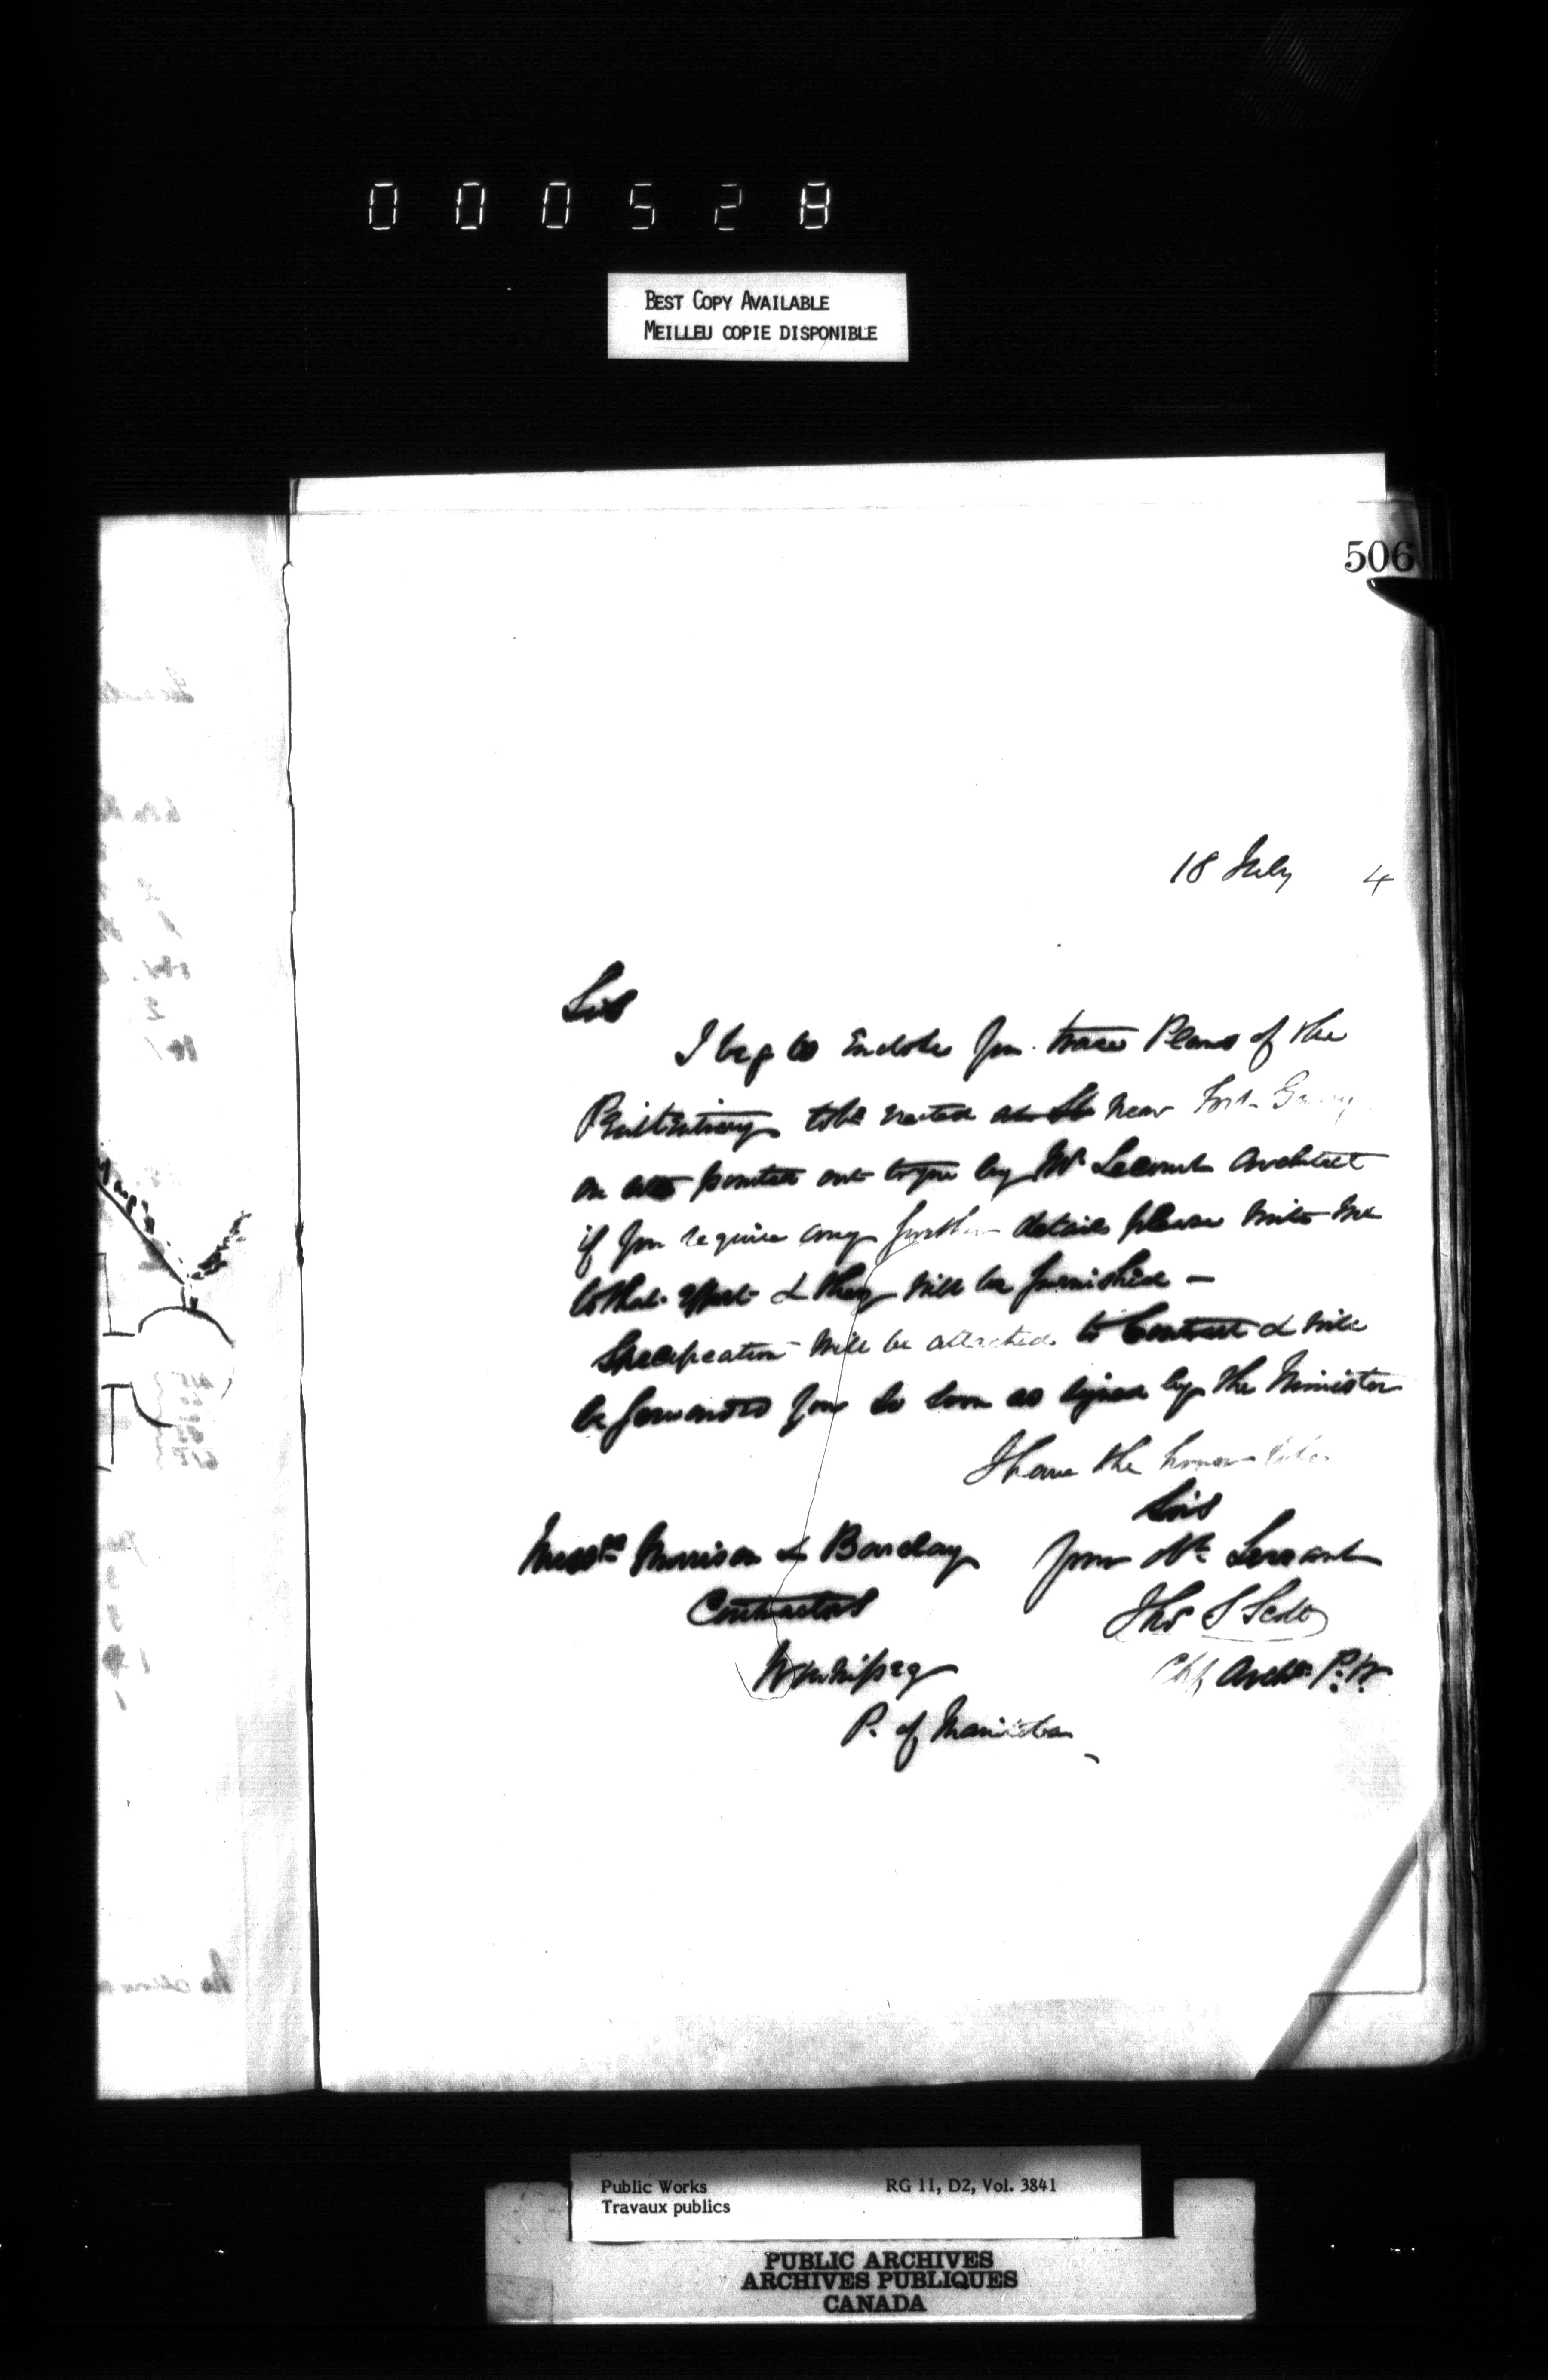 000528
BEST COPY AVAILABLE
MEILLEU COPIE DISPONIBLE
506
18 July 4
Sirs
I beg to Enclose you trace Plans of the
Penitentiary to be erected at St near Fort Garry
on site pointed out to you by Mr Lecourt Architect
if you require any further details please write me
to that effect & they will be furnished —
Specification will be attached to Contract & will
be forwarded you so soon as signed by the Minister
I have the honor to be
Sirs
Messrs Morrison & Barclay your Obt Servant
Contractors Thos S Scott
Winnipeg Chf Archt P. W.
P. of Manitoba
Public Works RG 11, D2, Vol. 3841
Travaux publics
PUBLIC ARCHIVES
ARCHIVES PUBLIQUES
CANADA